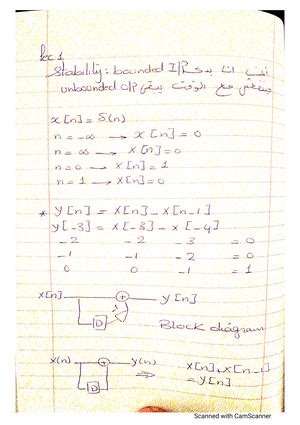 Lec 1
Stability: bounded I/P
unbounded O/P مع الوقت
x[n] = δ(n)
n = -∞ → x[n] = 0
n = ∞ → x[n] = 0
n = 0 → x[n] = 1
n = 1 → x[n] = 0
* y[n] = x[n] - x[n-1]
y[-3] = x[-3] - x[-4]
-2 -2 -3 = 0
-1 -1 -2 = 0
0 0 -1 = 1
x[n] + y[n]
D
Block diagram
x(n) + y(n) ⇒ x[n] + x[n-1]
D = y[n]
Scanned with CamScanner